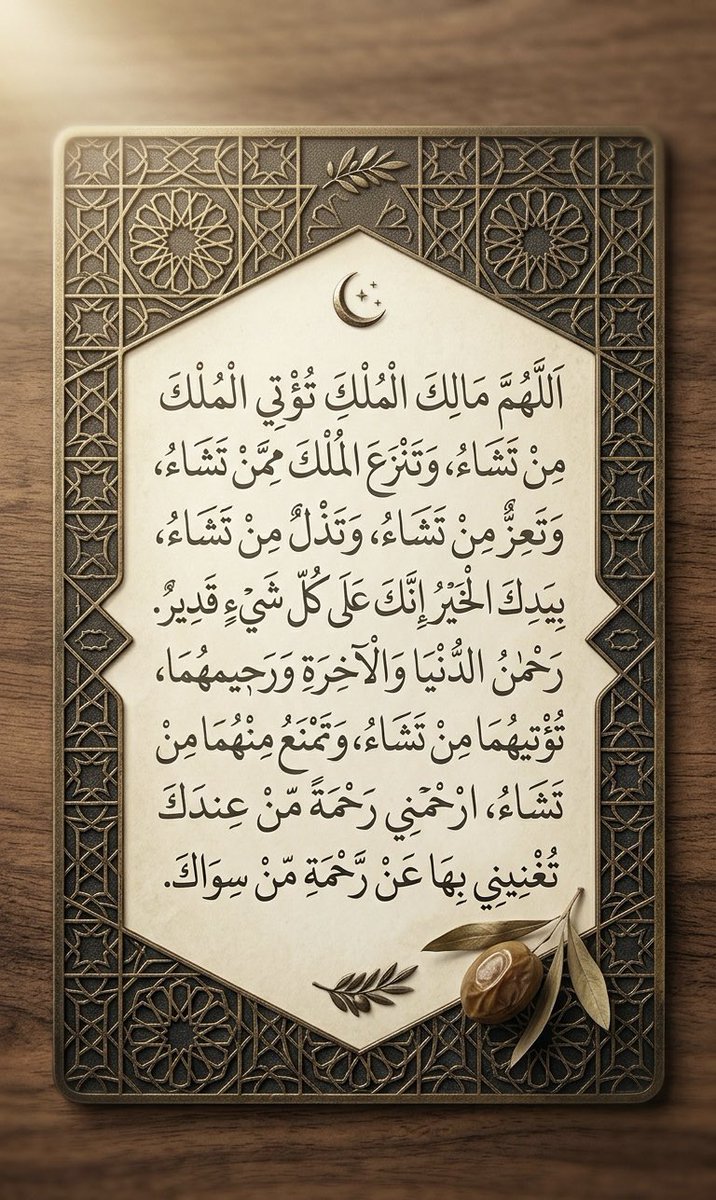 اَللَّهُمَّ مَالِكَ الْمُلْكِ تُؤْتِي الْمُلْكَ
مِنْ تَشَاءُ، وَتَنْزَعَ الْمُلْكَ مِمَّنْ تَشَاءُ،
وَتَعِزٌّ مِنْ تَشَاءُ، وَتَذْلٌ مِنْ تَشَاءُ،
بِيَدِكَ الْخَيْرُ إِنَّكَ عَلَى كُلّ شَيْءٍ قَدِيرٌ.
رَحْمٰنُ الدُّنْيَا وَالْآخِرَةِ وَرَحِيمهُمَا،
تُؤْتِيهُمَا مِنْ تَشَاءُ، وَتَمْنَعُ مِنْهُمَا مِنْ
تَشَاءُ، ارْحْمْنِي رَحْمَةً مّنْ عِندَكَ
تُغْنِينِي بِهَا عَنْ رَّحْمَةِ مّنْ سِوَاكَ.